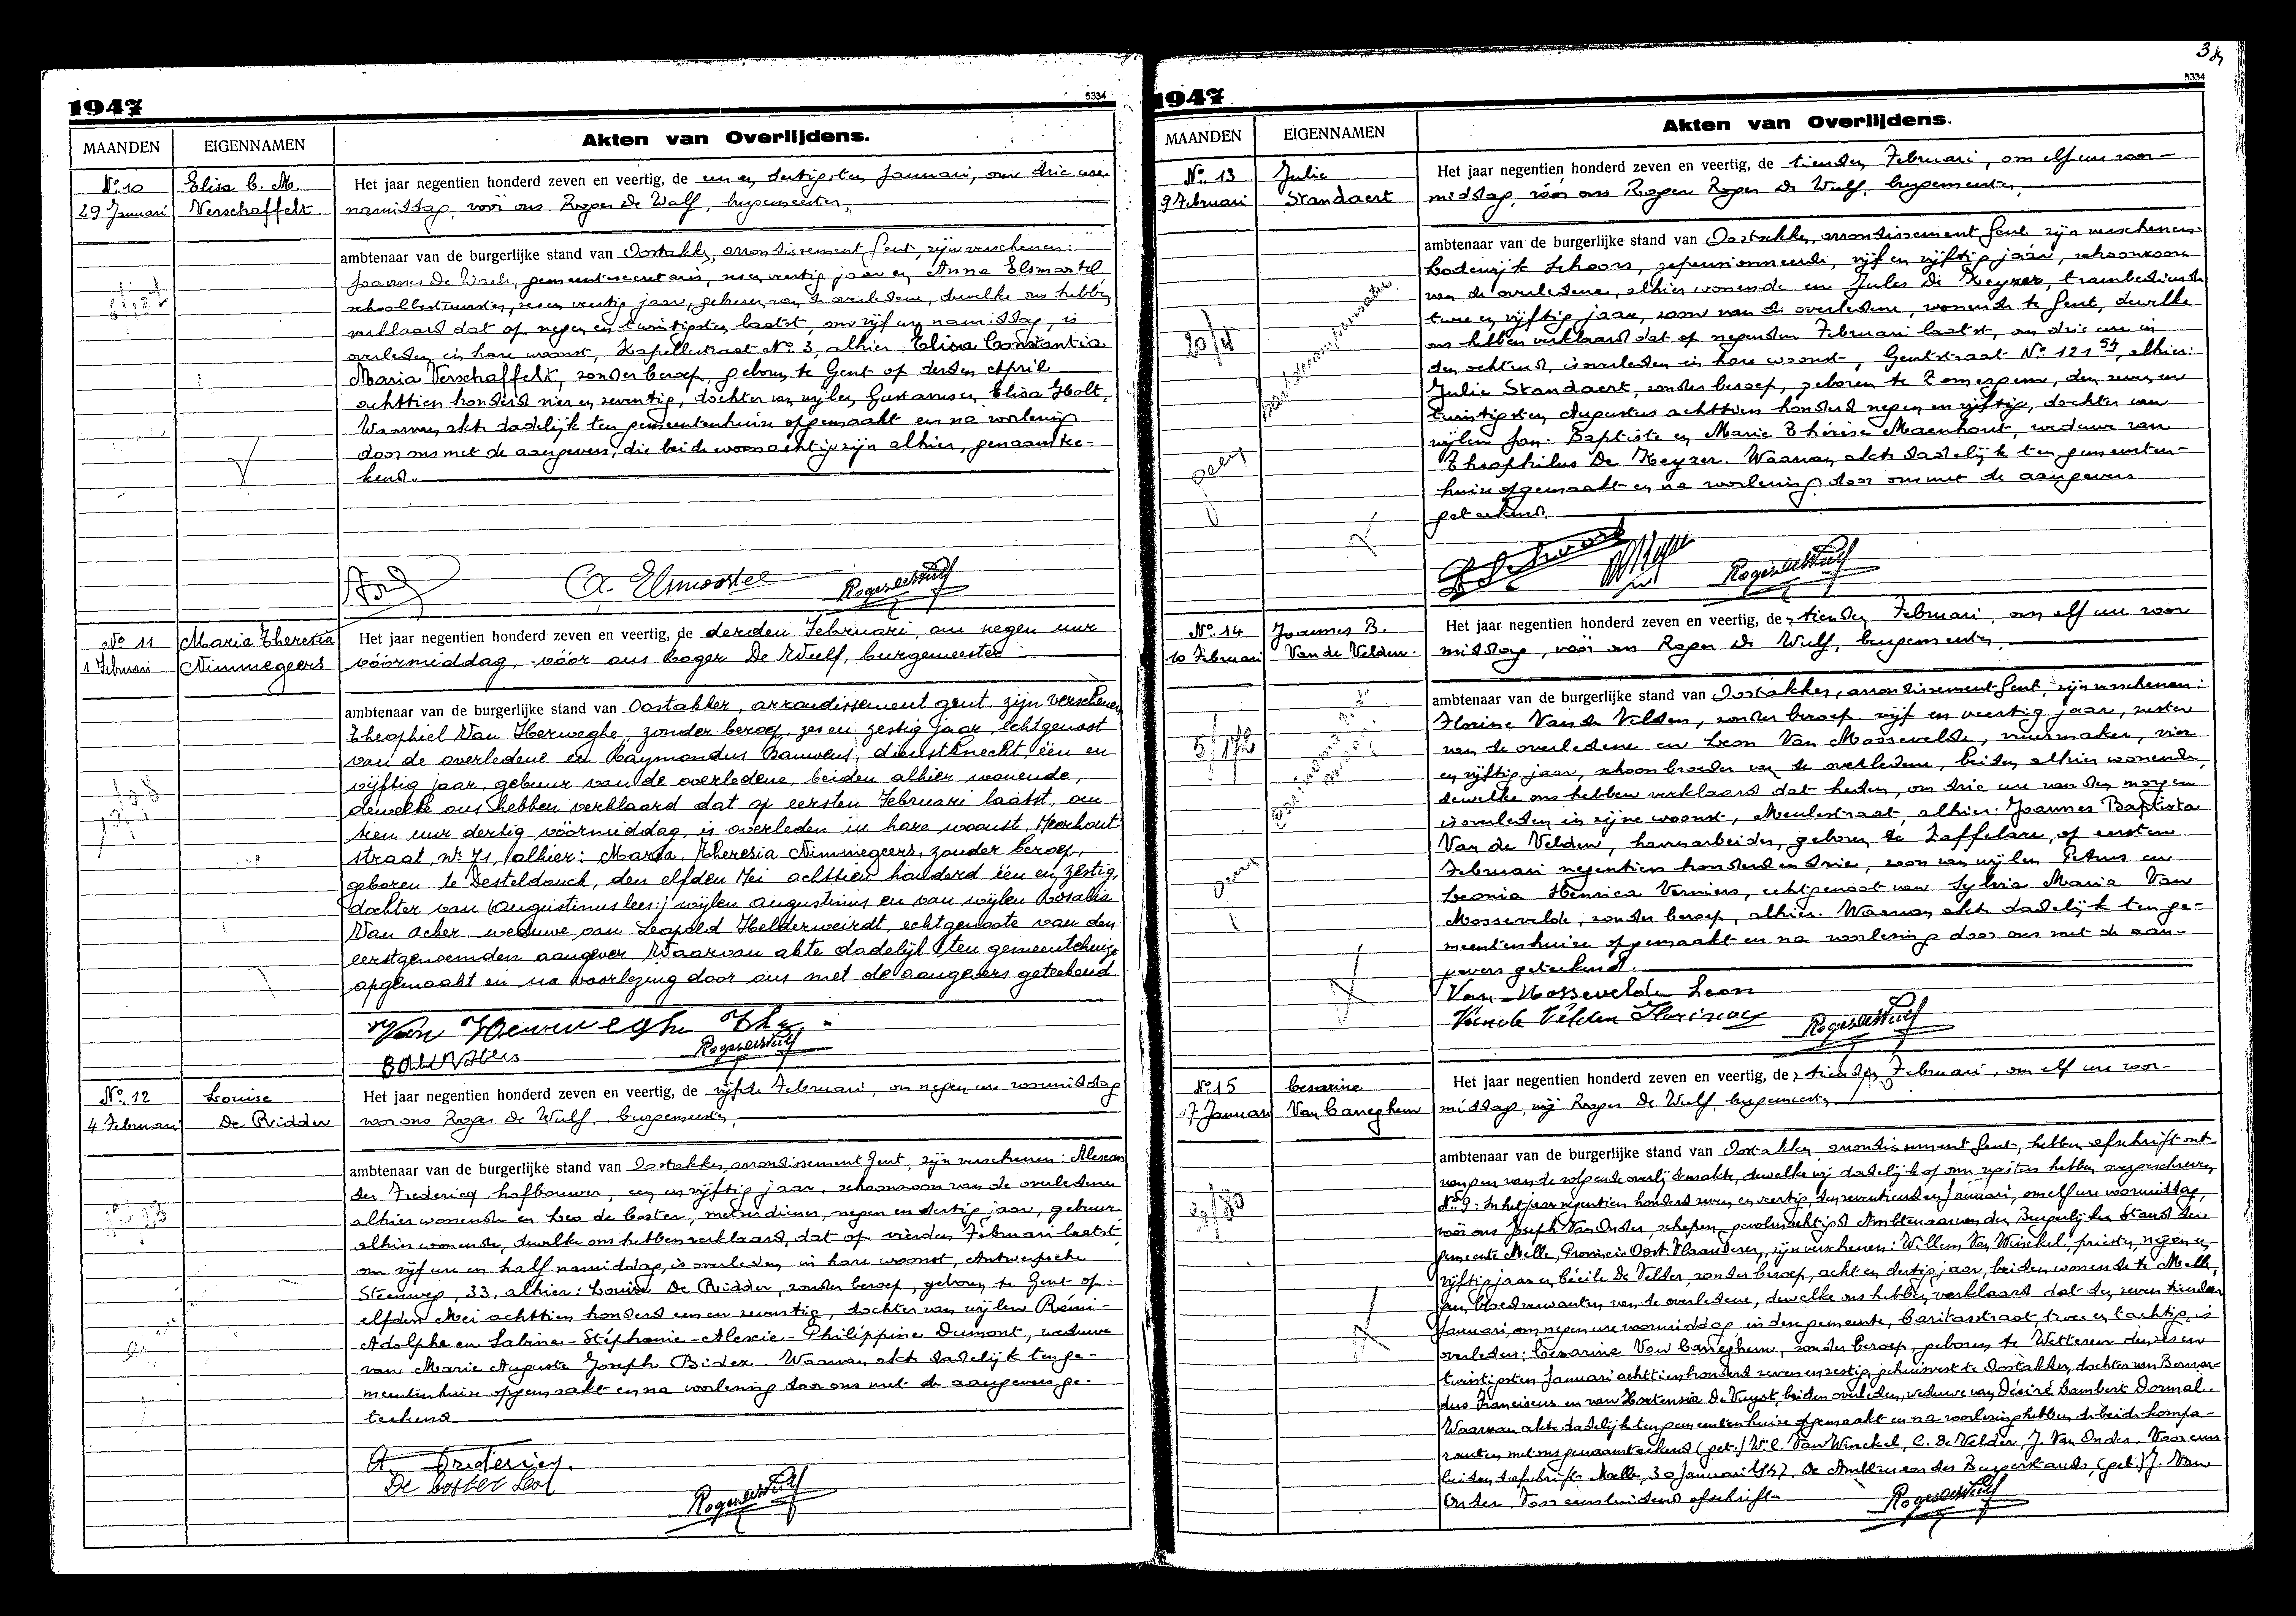 1947
5334
MAANDEN
EIGENNAMEN
Akten van Overlijdens.
No. 10
29 Januari
Elisa C. M.
Verschaffelt
Het jaar negentien honderd zeven en veertig, de een en dertigsten Januari, om drie ure
namiddag, vóór ons Roger De Wulf, burgemeester,
ambtenaar van de burgerlijke stand van Oostakker, arrondissement Gent, zijn verschenen:
Joannes De Waele, gemeentesecretaris, zes en veertig jaar en Anna Elsmortel
schoolbestuurster, zeven veertig jaar, geburen van de overledene, dewelke ons hebben
verklaard dat op negen en twintigsten laatst, om vijf ure namiddag, is
overleden in hare woonst, Kapellestraat No. 3, alhier: Elisa Constantia
Maria Verschaffelt, zonder beroep, geboren te Gent op derden April
achttien honderd vier en zeventig, dochter van wijlen Gustavus en Elisa Holt,
Waarvan akte dadelijk ten gemeentenhuize opgemaakt en na voorlezing
door ons met de aangevers, die beide woonachtig zijn alhier, genaamtee-
kend.
Roger De Wulf
No 11
1 Februari
Maria Theresia
Nimmegeers
Het jaar negentien honderd zeven en veertig, de derden Februari, om negen uur
vóórmiddag, vóór ons Roger De Wulf, burgemeester
ambtenaar van de burgerlijke stand van Oostakker, arrondissement Gent, zijn verschenen
Theophiel Van Herweghe, zonder beroep, zes en zestig jaar, echtgenoot
van de overledene en Raymondus Bauwens, dienstknecht, één en
vijftig jaar, gebuur van de overledene, beiden alhier wonende,
dewelke ons hebben verklaard dat op eersten Februari laatst, om
tien uur dertig vóórmiddag, is overleden in hare woonst, Meerhout-
straat, nr 71, alhier: Maria, Theresia Nimmegeers, zonder beroep,
geboren te Desteldonck, den elfden Mei achttien honderd één en zestig,
dochter van (Augustinus lees:) wijlen Augustinus en van wijlen Rosalia
Van Acker, weduwe van Leopold Helderweirdt, echtgenoote van den
eerstgenoemden aangever. Waarvan akte dadelijk ten gemeentehuize
opgemaakt en na voorlezing door ons met de aangevers geteekend
Roger De Wulf
No. 12
4 Februari
Louise
De Ridder
Het jaar negentien honderd zeven en veertig, de vijfde Februari, om negen ure voormiddag
voor ons Roger De Wulf, burgemeester,
ambtenaar van de burgerlijke stand van Oostakker, arrondissement Gent, zijn verschenen: Alexan
der Fredericq, hofbouwer, een en vijftig jaar, schoonzoon van de overledene
alhier wonende en Leo de Coster, metserdiener, negen en dertig jaar, gebuur
alhier wonende, dewelke ons hebben verklaard, dat op vierden Februari laatst,
om vijf ure en half namiddag, is overleden in hare woonst, Antwerpsche
Steenweg, 33, alhier: Louise De Ridder, zonder beroep, geboren te Gent op
elfden Mei achttien honderd een en zeventig, dochter van wijlen Rémi-
Adolphe en Sabine-Stéphanie-Alexie-Philippine Dumont, weduwe
van Marie Auguste Joseph Bidez. Waarvan akte dadelijk ten ge-
meentenhuize opgemaakt en na voorlezing door ons met de aangevers ge-
teekend
A. Fredericq.
De Coster Leo
Roger De Wulf
3
1947
5334
MAANDEN
EIGENNAMEN
Akten van Overlijdens.
No. 13
9 Februari
Julie
Standaert
20/4
Het jaar negentien honderd zeven en veertig, de tienden Februari, om elf ure voor-
middag, vóór ons Roger Roger De Wulf, burgemeester,
ambtenaar van de burgerlijke stand van Oostakker, arrondissement Gent zijn verschenen:
Lodewijk Schoors, gepensionneerde, vijf en vijftig jaar, schoonzoon
van de overledene, alhier wonende en Jules De Keyzer, trambediende
twee en vijftig jaar, zoon van de overledene, wonende te Gent, dewelke
ons hebben verklaard dat op negenden Februari laatst, om drie ure in
den ochtend, is overleden in hare woonst, Gentstraat No. 121, alhier:
Julie Standaert, zonder beroep, geboren te Zomergem, den zeven en
twintigsten Augustus achttien honderd negen en vijftig, dochter van
wijlen Jan-Baptiste en Marie Thérèse Maenhout, weduwe van
Theophilus De Keyzer. Waarvan akte dadelijk ten gemeenten-
huize opgemaakt en na voorlezing door ons met de aangevers
geteekend.
Roger De Wulf
No. 14
10 Februari
Joannes B.
Van de Velden.
5/172
Het jaar negentien honderd zeven en veertig, de tienden Februari, om elf ure voor
middag, vóór ons Roger De Wulf, burgemeester,
ambtenaar van de burgerlijke stand van Oostakker, arrondissement Gent, zijn verschenen:
Florine Van de Velden, zonder beroep, vijf en veertig jaar, zuster
van de overledene en Leon Van Mossevelde, vuurmaker, vier
en vijftig jaar, schoonbroeder van de overledene, beiden alhier wonende,
dewelke ons hebben verklaard dat heden, om drie ure van den morgen
is overleden in zijne woonst, Meulestraat, alhier: Joannes Baptista
Van de Velden, havenarbeider, geboren te Zaffelare, op eersten
Februari negentien honderd en drie, zoon van wijlen Petrus en
Leonia Henrica Verniers, echtgenoot van Sylvia Maria Van
Mossevelde, zonder beroep, alhier. Waarvan akte dadelijk ten ge-
meentenhuize opgemaakt en na voorlezing door ons met de aan-
gevers geteekend.
Van Mossevelde Leon
Van de Velden Florine
Roger De Wulf
No. 15
17 Januari
Cesarine
Van Caneghem
Het jaar negentien honderd zeven en veertig, de tienden Februari, om elf ure voor-
middag, wij Roger De Wulf, burgemeester
ambtenaar van de burgerlijke stand van Oostakker, arrondissement Gent, hebben afschrift ont-
vangen van de volgende overlijdensakte, dewelke wij dadelijk op onze registers hebben overgeschreven
No. 9: In het jaar negentien honderd zeven en veertig, den zeventienden Januari, om elf ure voormiddag,
vóór ons Joseph Van Onder, schepen, gevolmachtigd Ambtenaar van den Burgerlijken Stand der
gemeente Melle, Provincie Oost-Vlaanderen, zijn verschenen: Willem Van Winckel, priester, negen en
vijftig jaar en Cécile De Velder, zonder beroep, acht en dertig jaar, beiden wonende te Melle,
geen bloedverwanten van de overledene, dewelke ons hebben verklaard dat den zeventienden
Januari, om negen ure voormiddag in deze gemeente, Caritasstraat, twee en tachtig, is
overleden: Cesarine Van Caneghem, zonder beroep, geboren te Wetteren den zes en
twintigsten Januari achttien honderd zeven en zestig, gehuisvest te Oostakker, dochter van Bernar-
dus Franciscus en van Hortensia De Vuyst, beiden overleden, weduwe van Désiré Lambert Dormal.
Waarvan akte dadelijk ten gemeentenhuize opgemaakt en na voorlezing hebben de beide kompa-
ranten met ons genaamteekend (get.) W. C. Van Winckel, C. De Velder, J. Van Onder. Voor eens-
luidend afschrift. Melle, 30 Januari 1947. De Ambtenaar des Burgerstands, (get.) J. Van
Onder. Voor eensluidend afschrift.
Roger De Wulf